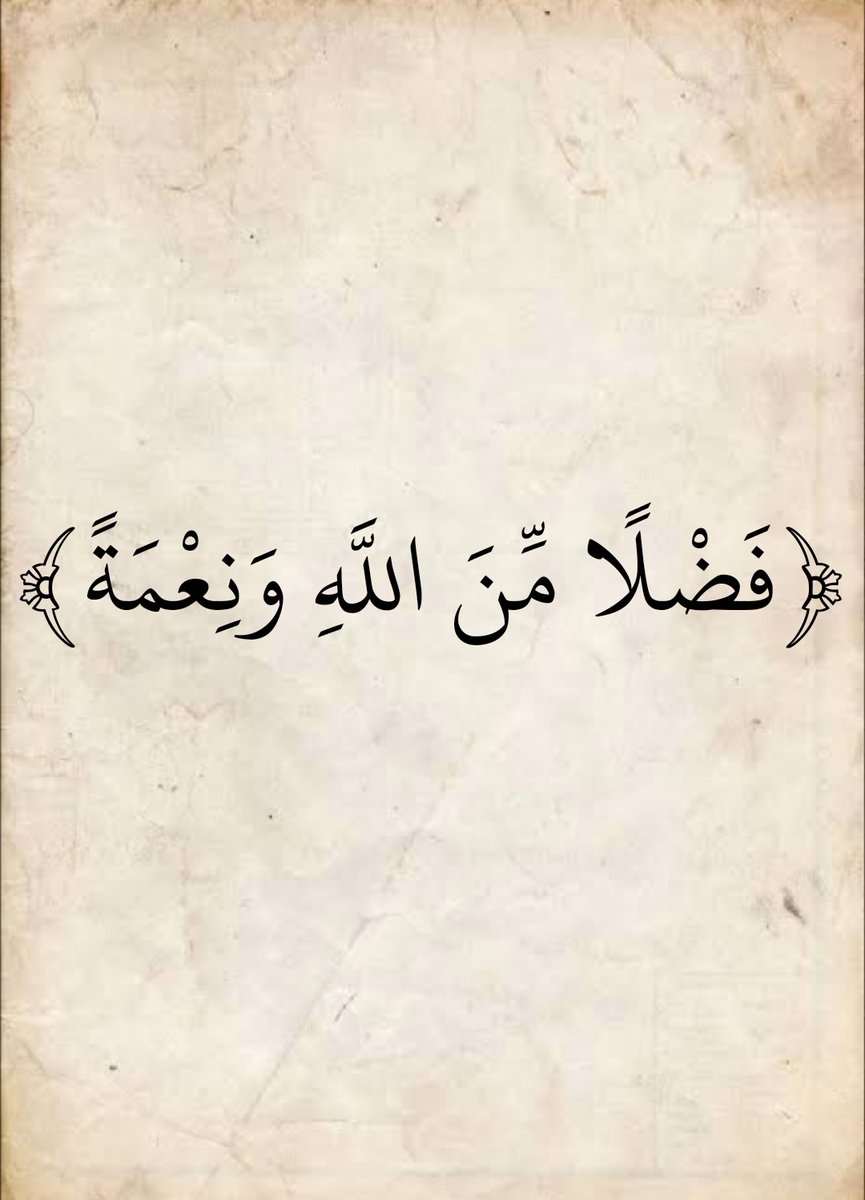 ﴿فَضْلًا مِّنَ اللَّهِ وَنِعْمَةً﴾